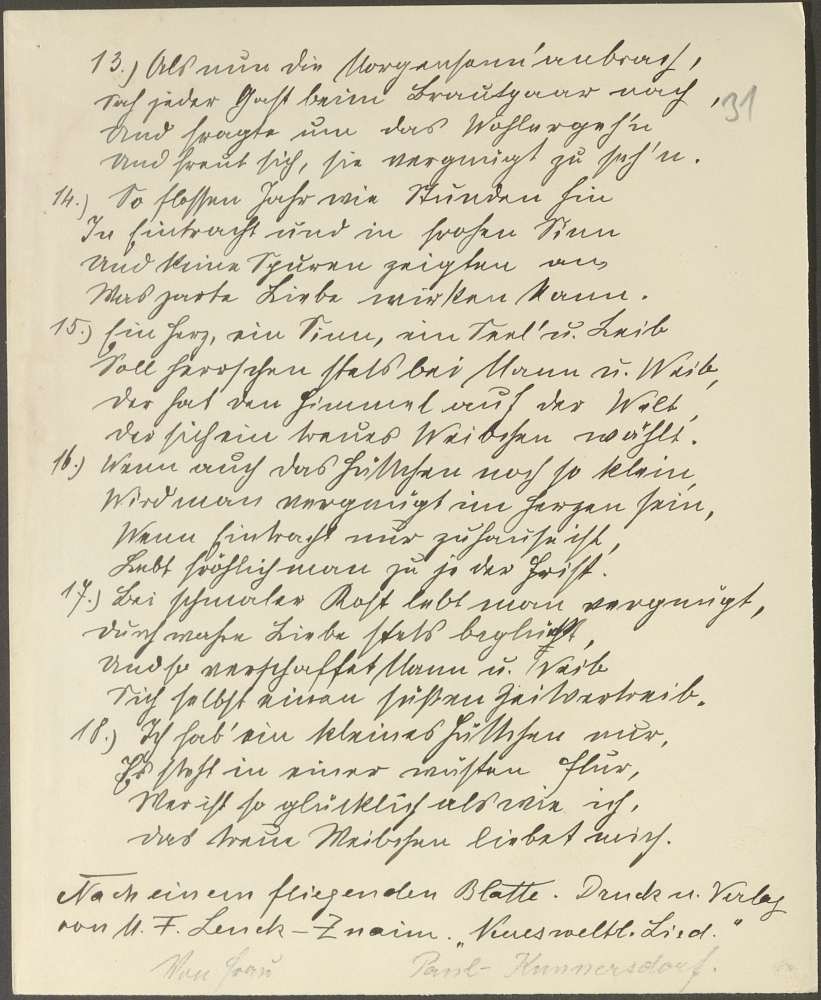 13.) Als nun die Morgensonn' anbrach,
31
Sah jeder Gast beim Brautpaar nach,
Und fragte um das Wohlergeh'n
Und freut sich, sie vergnügt zu seh'n.
14.) So flossen Jahr wie Stunden hin
In Eintracht und in frohen Sinn
Und keine Spuren zeigten an,
Was zarte Liebe wirken kann.
15.) Ein Herz, ein Sinn, ein Seel' u. Leib
Soll herrschen stets bei Mann u. Weib,
Der hat den Himmel auf der Welt,
Der sich ein treues Weibchen wählt.
16.) Wenn auch das Hüttchen noch so klein,
Wird man vergnügt im Herzen sein,
Wenn Eintracht nur zuhause ist,
Lebt fröhlich man zu jeder Frist.
17.) Bei schmaler Kost lebt man vergnügt,
Durch wahre Liebe stets beglückt,
Und so verschaffet Mann u. Weib
Sich selbst einen süßen Zeitvertreib.
18.) Ich hab' ein kleines Hüttchen nur,
Es steht in einer wüsten Flur,
Wer ist so glücklich als wie ich,
Das treue Weibchen liebet mich.
Nach einem fliegenden Blatte. Druck u. Verlag
von M. F. Lenck - Znaim. „Neues weltl. Lied."
Von Frau Paul - Kunnersdorf.